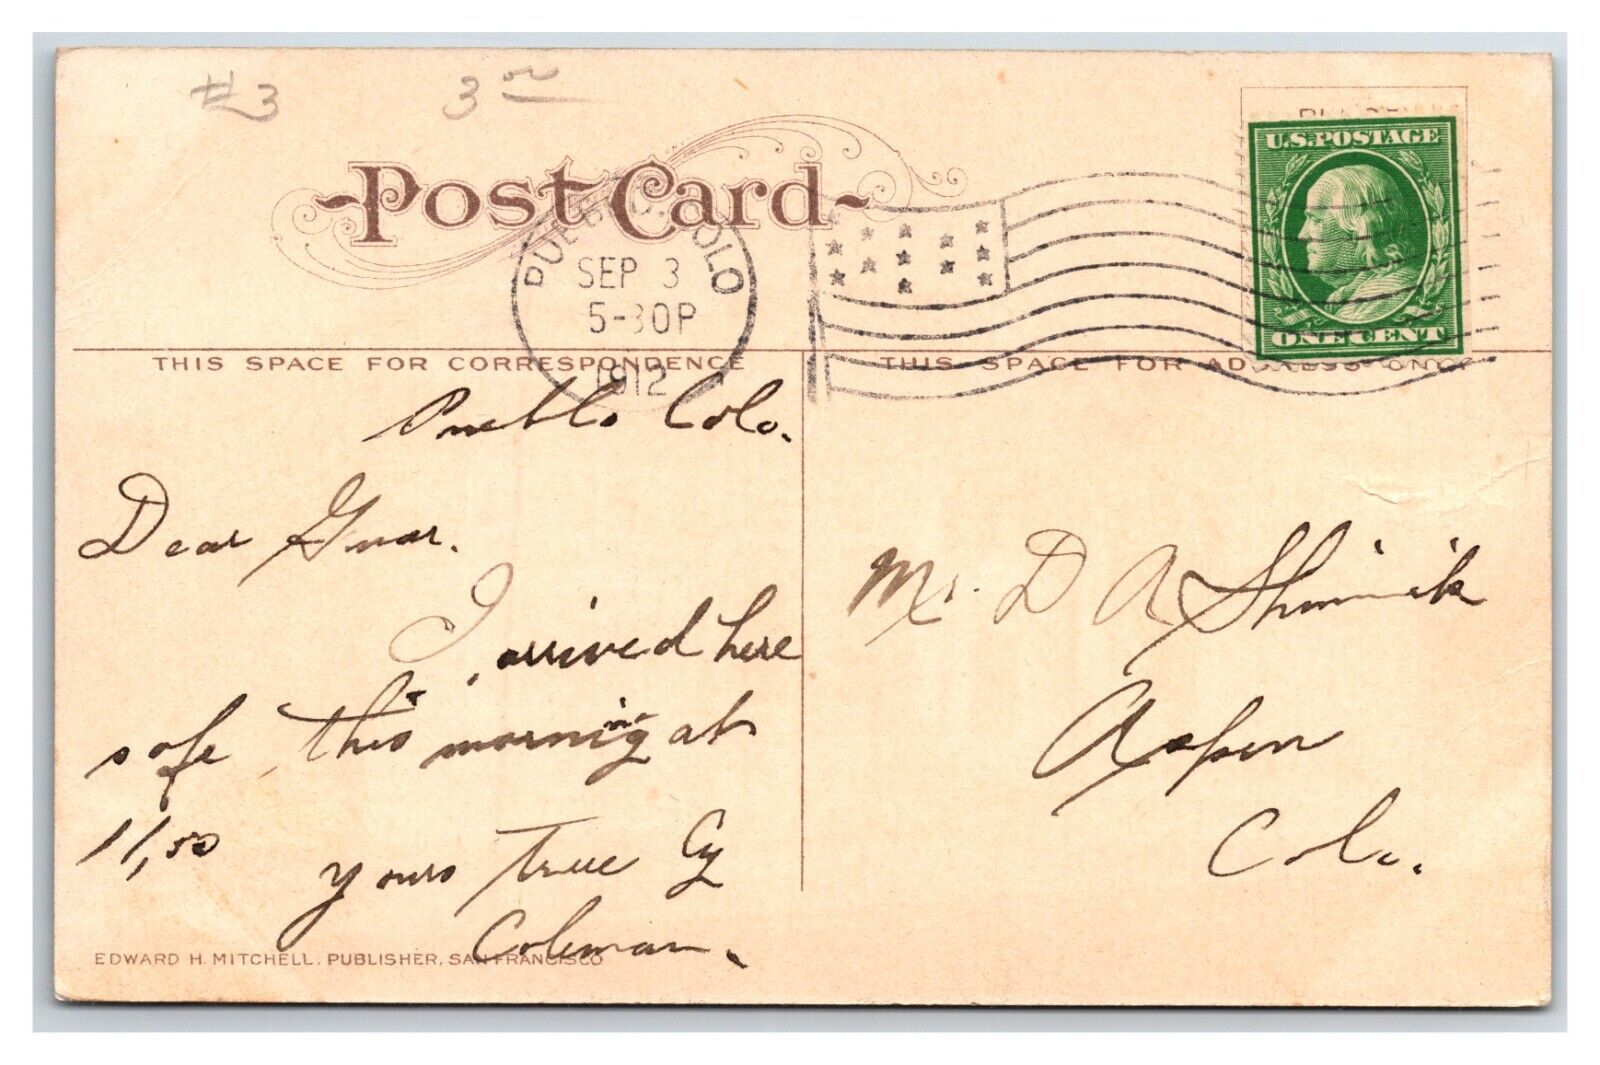 #3 3 00
Post Card
PUEBLO, COLO
SEP 3
5-30P
1912
U.S. POSTAGE
ONE CENT
THIS SPACE FOR CORRESPONDENCE
THIS SPACE FOR ADDRESS ONLY
Pueblo Colo.
Dear
I arrived here
safe this morning at
11,50
yours True Cy
Coleman.
Mr. D A
Aspen
Colo.
EDWARD H. MITCHELL, PUBLISHER, SAN FRANCISCO